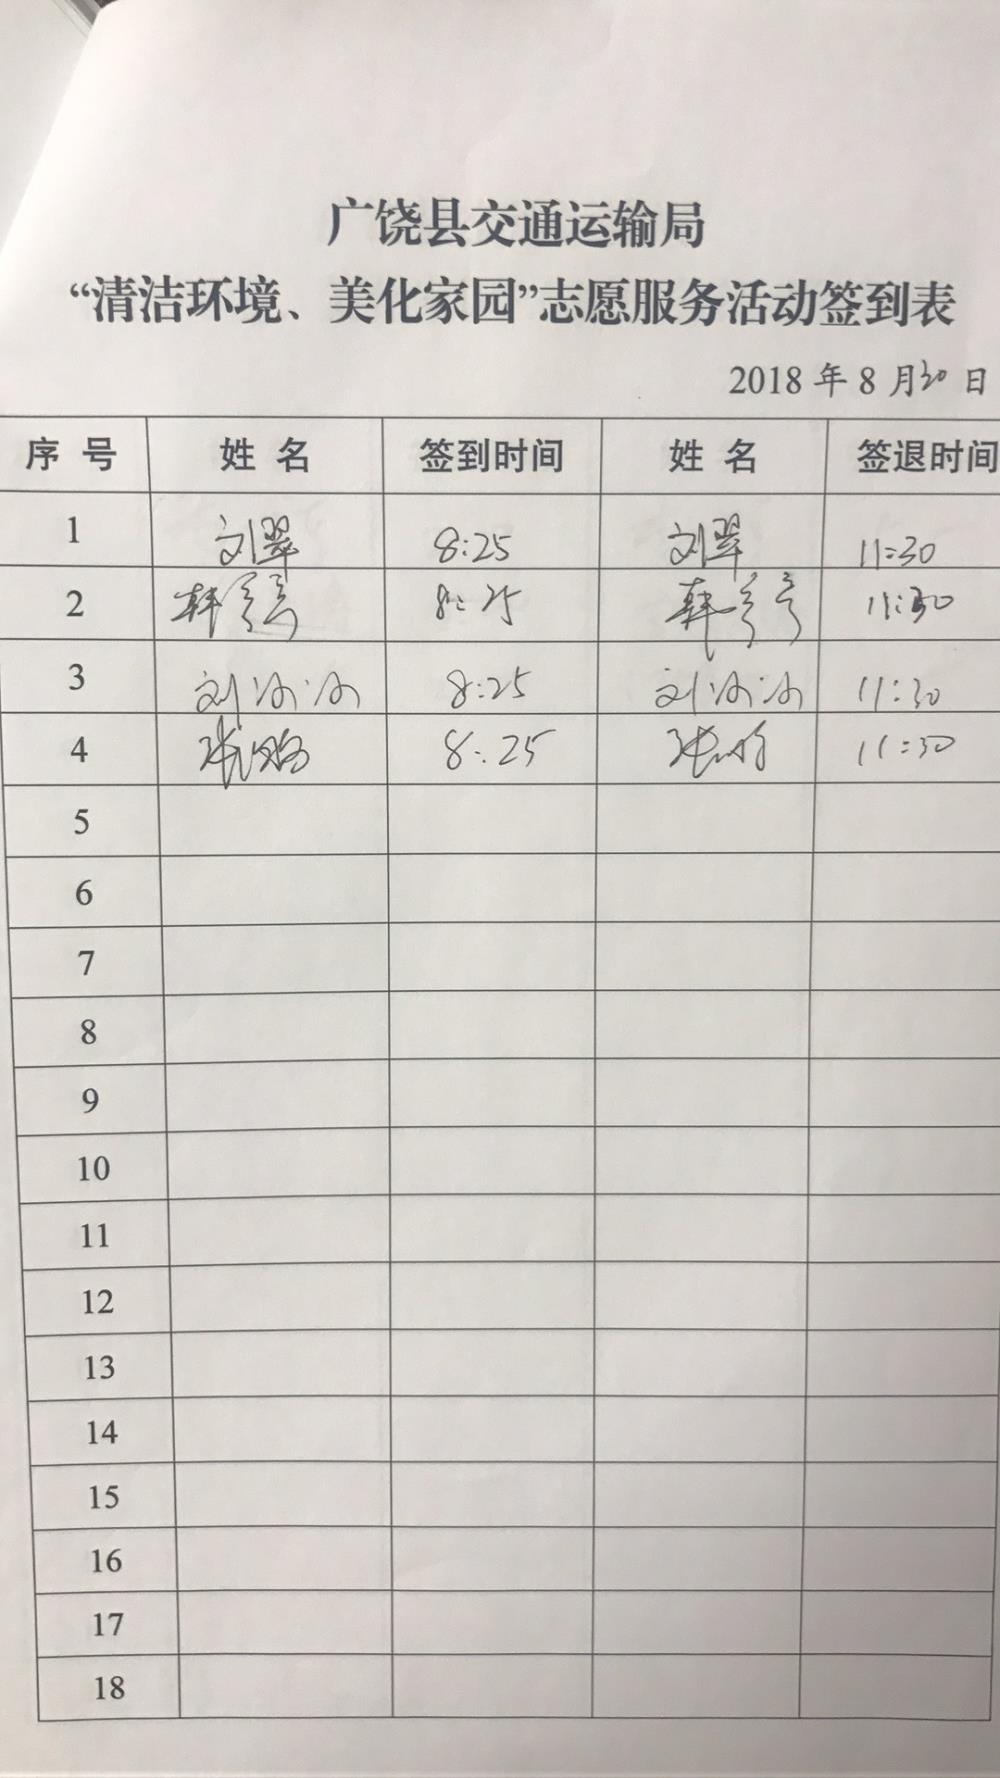 广饶县交通运输局
“清洁环境、美化家园”志愿服务活动签到表
2018 年 8 月 30 日
序号 姓名 签到时间 姓名 签退时间
1 刘翠 8:25 刘翠 11:30
2 韩 8:25 韩 11:30
3 刘冰冰 8:25 刘冰冰 11:30
4 张 8:25 张 11:30
5
6
7
8
9
10
11
12
13
14
15
16
17
18